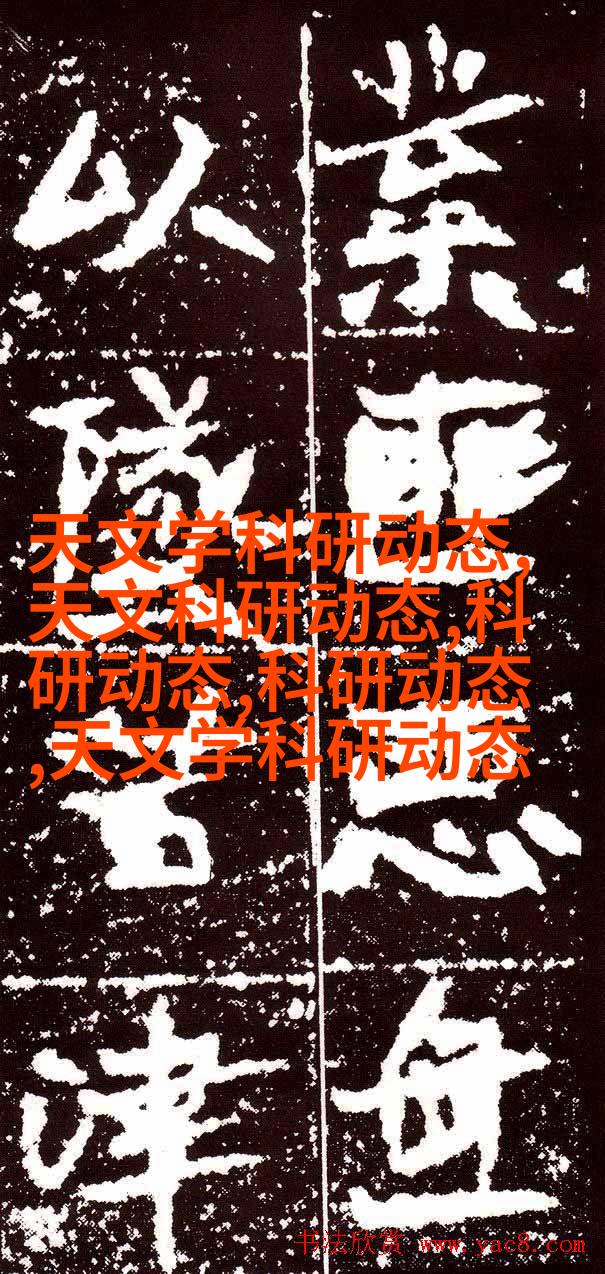 業思
以津
天文学科研动态,
天文科研动态,科
研动态,科研动态
,天文学科研动态
书法欣赏 www.yac8.com